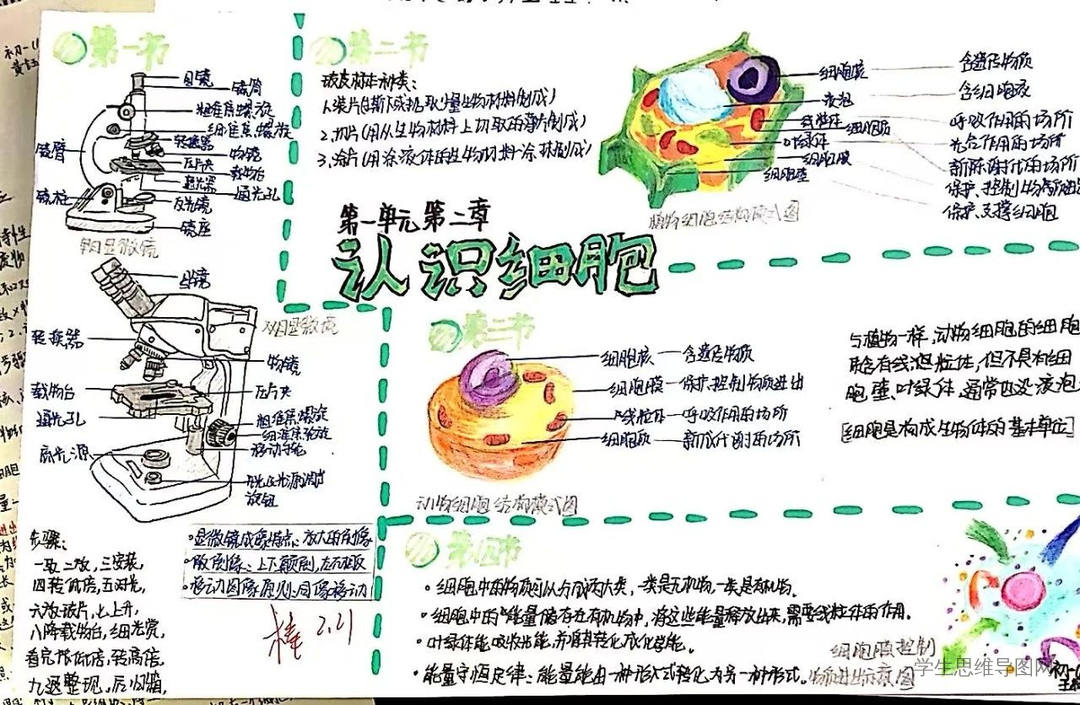 第一节
目镜
镜筒
粗准焦螺旋
细准焦螺旋
转换器
镜臂
物镜
压片夹
载物台
遮光器
通光孔
镜柱
反光镜
镜座
单目显微镜
目镜
双目显微镜
转换器
物镜
载物台
压片夹
通光孔
粗准焦螺旋
细准焦螺旋
移动手轮
高光源
步骤:
一取二放,三安装,
四转低倍,五对光,
六放玻片,七上升,
八降载物台,细光赏,
看完低倍,转高倍,
九退整理,后归箱,
·显微镜成像特点:放大的倒像
·倒像:上下颠倒,左右相反
·移动图像原则:同像移动
棒 2.21
第二节
玻片标本种类:
1.装片(撕下或挑取少量生物材料制成)
2.切片(用从生物材料上切取的薄片制成)
3.涂片(用液体的生物材料涂抹制成)
细胞核
含遗传物质
液泡
含细胞液
线粒体
呼吸作用的场所
叶绿体
光合作用的场所
细胞质
新陈谢代的场所
细胞膜
细胞壁
保护、支撑细胞
植物细胞结构模式图
第一单元第二章
认识细胞
第三节
细胞核
含遗传物质
细胞膜
保护,控制物质进出
线粒体
呼吸作用的场所
细胞质
新陈代谢的场所
动物细胞结构模式图
与植物一样,动物细胞的细胞
质含有线粒体,但不具有细
胞壁、叶绿体,通常也没液泡
[细胞是构成生物体的基本单位]
第四节
·细胞中的物质可以分成两大类,一类是无机物,一类是有机物。
·细胞中的能量储存在有机物中,将这些能量释放出来,需要线粒体的作用。
·叶绿体能吸收光能,并将其转化成化学能。
·能量守恒定律:能量能由一种形式转化为另一种形式。
细胞膜控制
物质进出示意图
学生思维导图网
初一